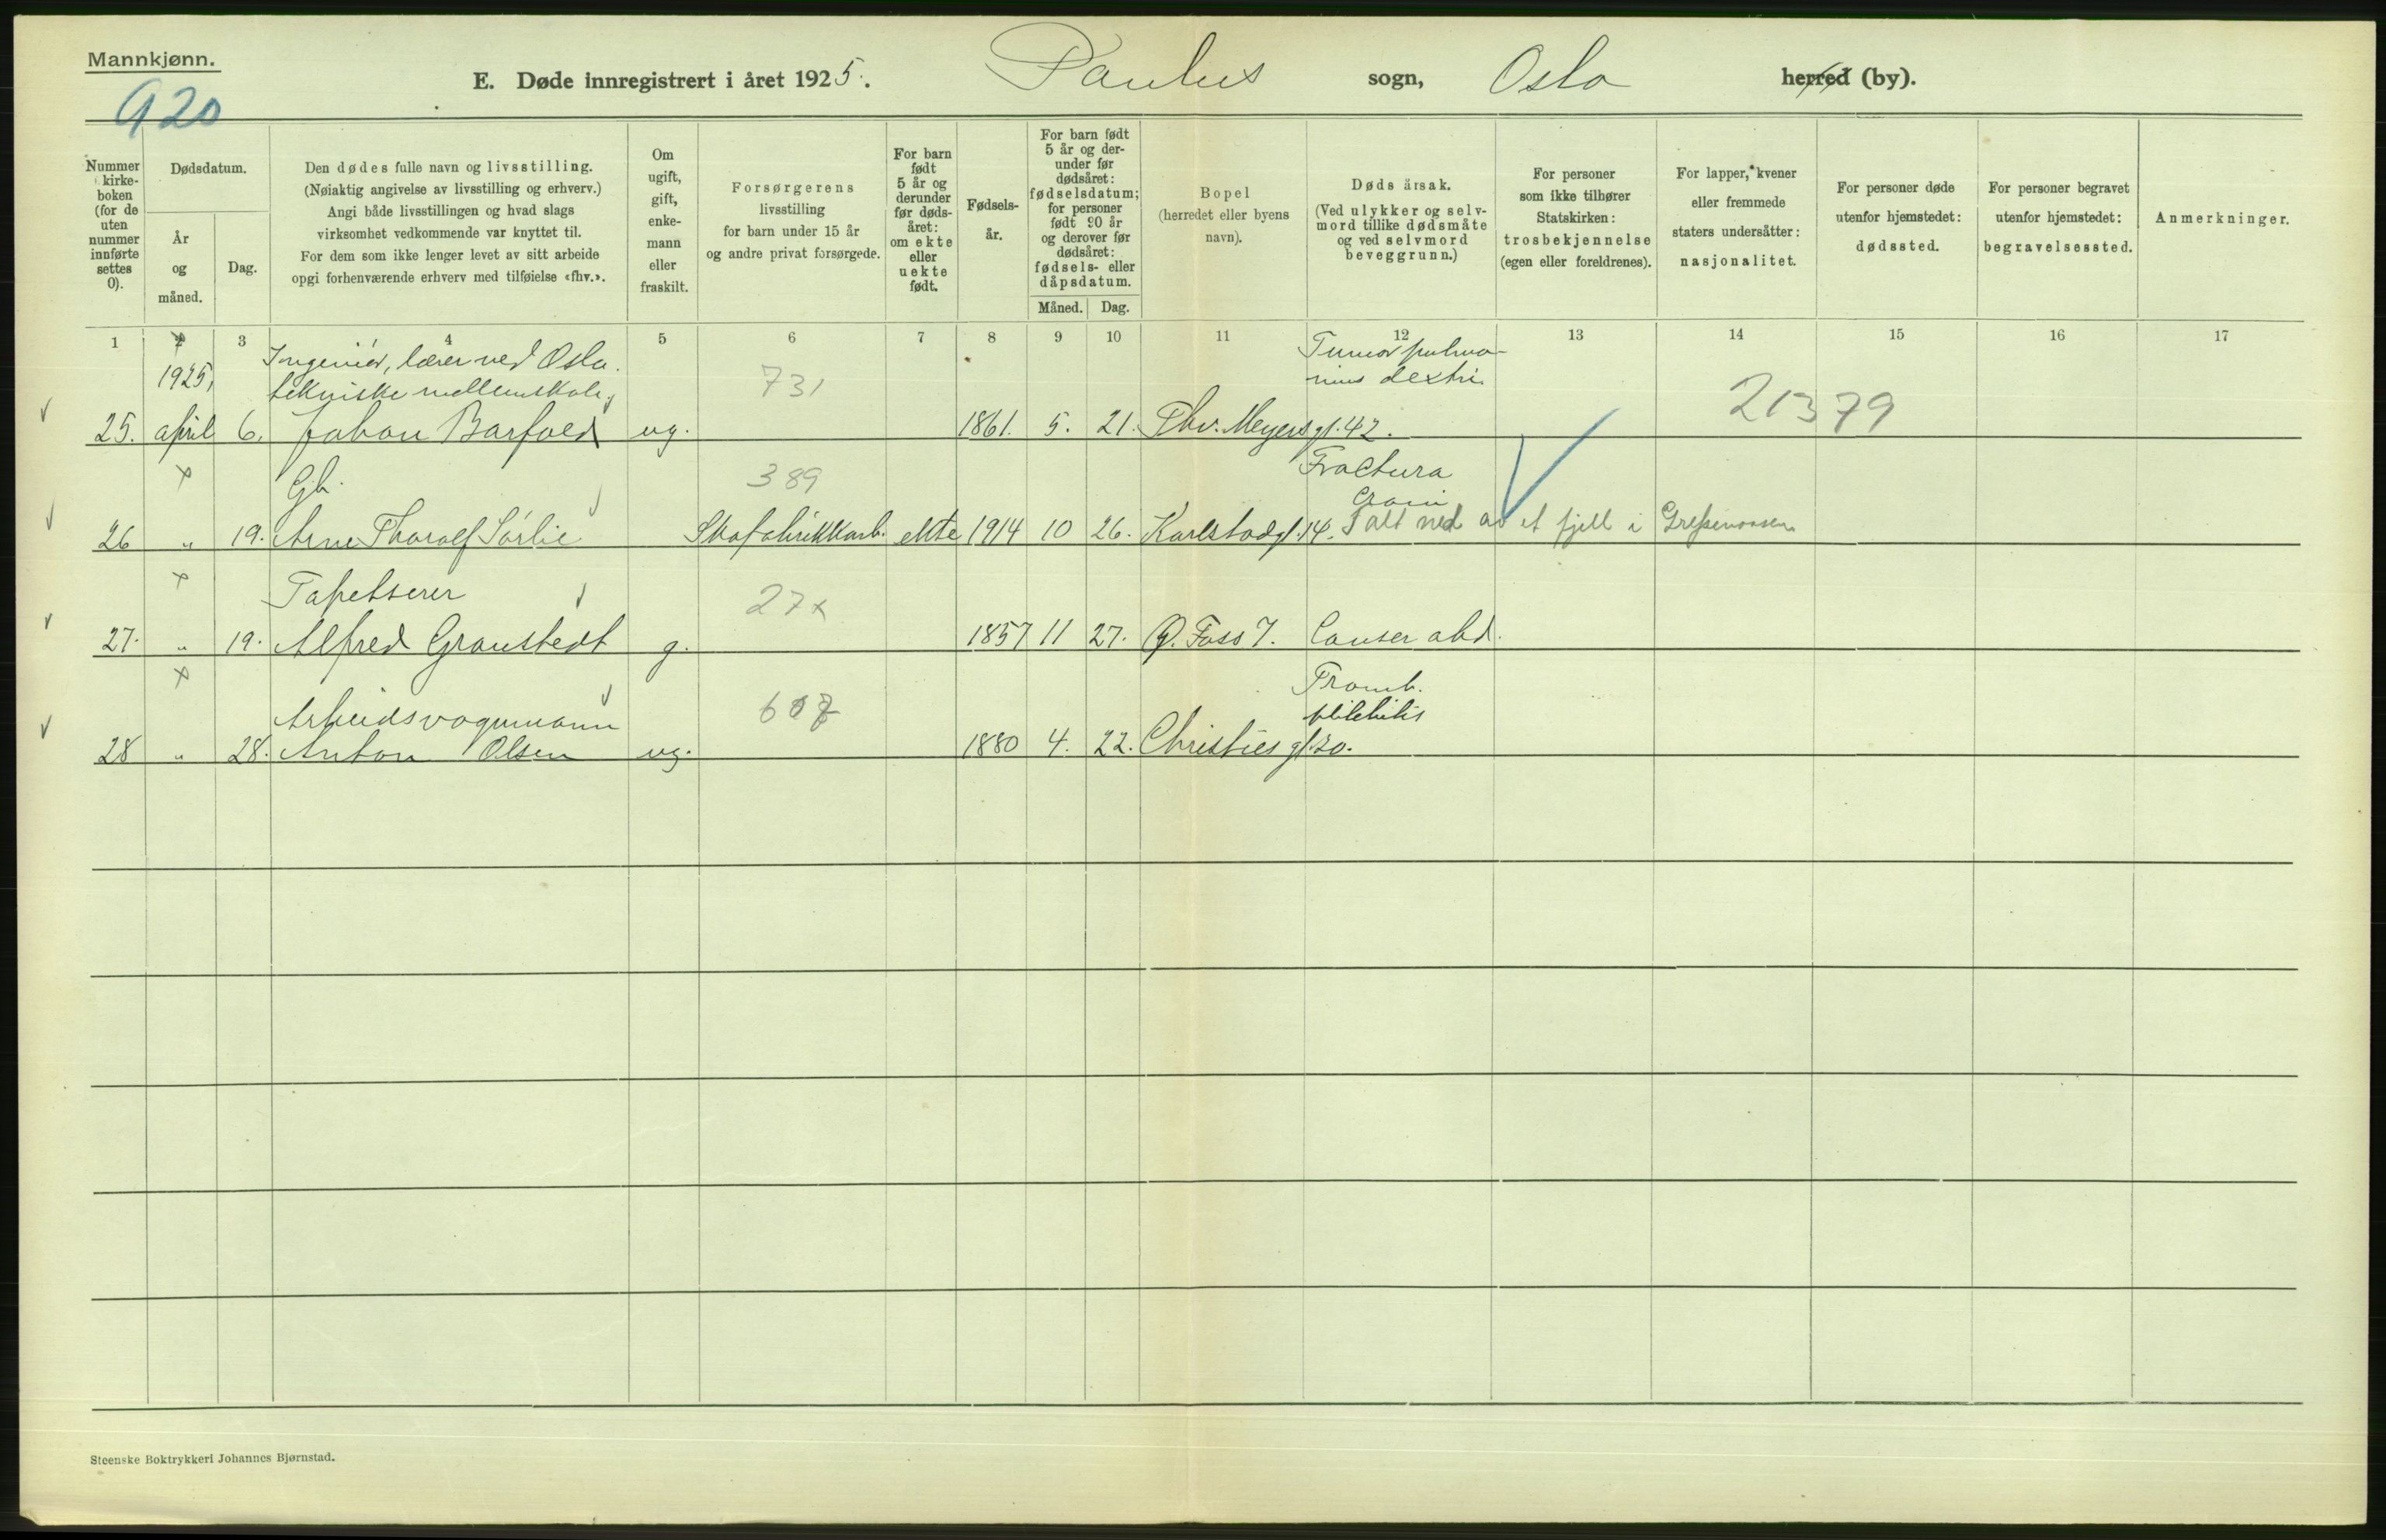 Mannkjønn.
920
E. Døde innregistrert i året 1925. Paulus sogn, Oslo herred (by).
Nummer
kirke-
boken
(for de
uten
nummer
innførte
settes
0).
Dødsdatum.
År
og
måned.
Dag.
Den dødes fulle navn og livsstilling.
(Nøiaktig angivelse av livsstilling og erhverv.)
Angi både livsstillingen og hvad slags
virksomhet vedkommende var knyttet til.
For dem som ikke lenger levet av sitt arbeide
opgi forhenværende erhverv med tilføielse «fhv.».
Om
ugift,
gift,
enke-
mann
eller
fraskilt.
Forsørgerens
livsstilling
for barn under 15 år
og andre privat forsørgede.
For barn
født
5 år og
derunder
før døds-
året:
om ekte
eller
uekte
født.
Fødsels-
år.
For barn født
5 år og der-
under før
dødsåret:
fødselsdatum;
for personer
født 90 år
og derover før
dødsåret:
fødsels- eller
dåpsdatum.
Måned. Dag.
Bopel
(herredet eller byens
navn).
Dødsårsak.
(Ved ulykker og selv-
mord tillike dødsmåte
og ved selvmord
beveggrunn.)
For personer
som ikke tilhører
Statskirken:
trosbekjennelse
(egen eller foreldrenes).
For lapper, kvener
eller fremmede
staters undersåtter:
nasjonalitet.
For personer døde
utenfor hjemstedet:
dødssted.
For personer begravet
utenfor hjemstedet:
begravelsessted.
Anmerkninger.
1 2 3 4 5 6 7 8 9 10 11 12 13 14 15 16 17
1925, Ingeniør, lærer ved Oslo 731 Tumor pulmo-
tekniske mellemskole, nius dextri. 21379
25. april 6. Johan Barfoed ug. 1861. 5. 21. Thv. Meyersgt. 42.
Gb. 389 Fractura
Cranii
26 " 19. Arne Thoralf Sörlie Skofabrikkarb. ekte 1914 10 26. Karlstadgt. 14. Falt ned av et fjell i Grefsenaasen
Tapetserer 27x
27. " 19. Alfred Granstedt g. 1857 11 27. Ø. Foss 7. Canser abd.
Arbeidsvognmann 607 Tromb.
phlebitis
28 " 28. Anton Olsen ug. 1880 4. 22. Christies gt. 20.
Steenske Boktrykkeri Johannes Bjørnstad.